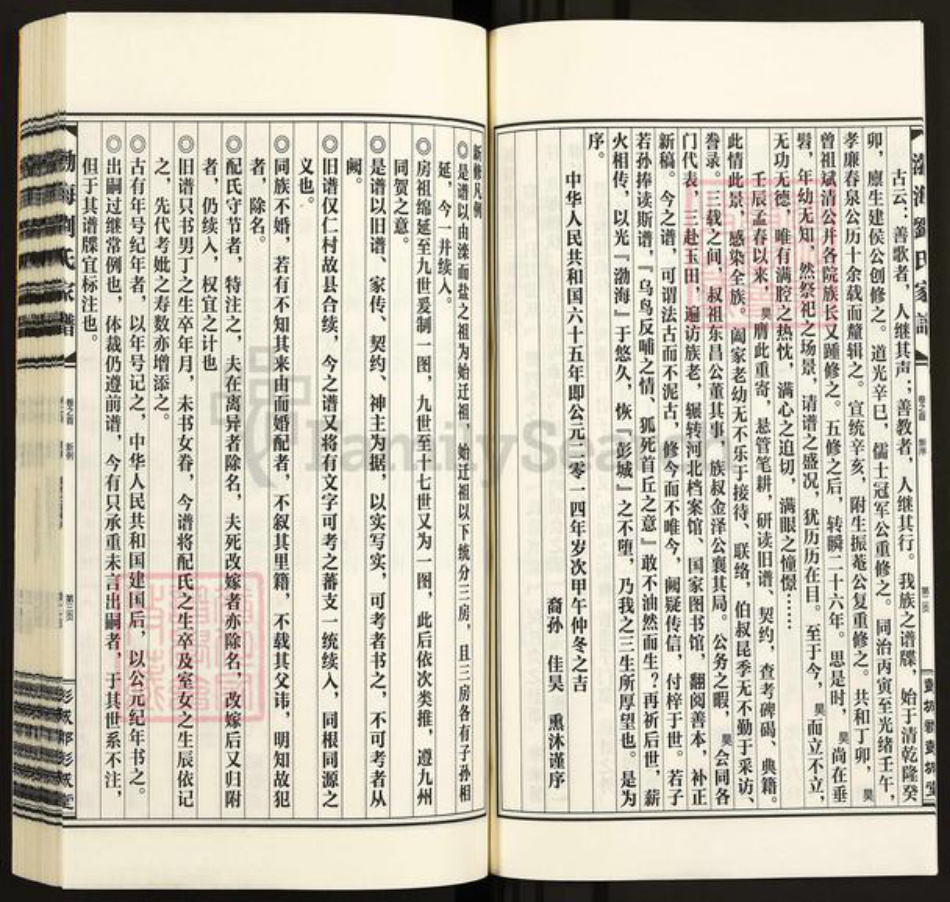 渤海劉氏家譜
卷之首 新序
古云：善歌者，人继其声；善教者，人继其行。我族之谱牒，始于清乾隆癸
卯，廪生建侯公创修之。道光辛巳，儒士冠军公重修之。同治丙寅至光绪壬午，
孝廉春泉公历十余载而釐辑之。宣统辛亥，附生振菴公复重修之。共和丁卯，昊
曾祖斌清公并各院族长又踵修之。五修之后，转瞬二十六年。思是时，昊尚在垂
髫，年幼无知，然祭祀之场景，请谱之盛况，犹历历在目。至于今，昊而立不立，
无功无德，唯有满腔之热忱，满心之迫切，满眼之憧憬……
壬辰孟春以来，昊膺此重寄，悬管笔耕，研读旧谱、契约，查考碑碣、典籍。
此情此景，感染全族。阖家老幼无不乐于接待、联络，伯叔昆季无不勤于采访、
誊录。三载之间，叔祖东昌公董其事，族叔金泽公襄其局。公务之暇，昊会同各
门代表，三赴玉田，遍访族老，辗转河北档案馆、国家图书馆，翻阅善本，补正
新稿。今之谱，可谓法古而不泥古，修今而不唯今，阙疑传信，付梓于世。若子
若孙捧读斯谱，『乌鸟反哺之情、狐死首丘之意』敢不油然而生？再祈后世，薪
火相传，以光『渤海』于悠久，恢『彭城』之不堕，乃我之三生所厚望也。是为
序。
中华人民共和国六十五年即公元二零一四年岁次甲午仲冬之吉
裔孙 佳昊 熏沐谨序
新修凡例
◎是谱以由滦而盐之祖为始迁祖，始迁祖以下统分三房，且三房各有子孙相
延，今一并续入。
◎房祖绵延至九世爰制一图，九世至十七世又为一图，此后依次类推，遵九州
同贺之意。
◎是谱以旧谱、家传、契约、神主为据，以实写实，可考者书之，不可考者从
阙。
◎旧谱仅仁村故县合续，今之谱又将有文字可考之蕃支一统续入，同根同源之
义也。
◎同族不婚，若有不知其来由而婚配者，不叙其里籍，不载其父讳，明知故犯
者，除名。
◎配氏守节者，特注之，夫在离异者除名，夫死改嫁者亦除名，改嫁后又归附
者，仍续入，权宜之计也
◎旧谱只书男丁之生卒年月，未书女眷，今谱将配氏之生卒及室女之生辰依记
之，先代考妣之寿数亦增添之。
◎古有年号纪年者，以年号记之，中华人民共和国建国后，以公元纪年书之。
◎出嗣过继常例也，体裁仍遵前谱，今有只承重未言出嗣者，于其世系不注，
但于其谱牒宜标注也。
渤海劉氏家譜
卷之首 新例
第三页
彭城郡彭城堂
FamilySearch